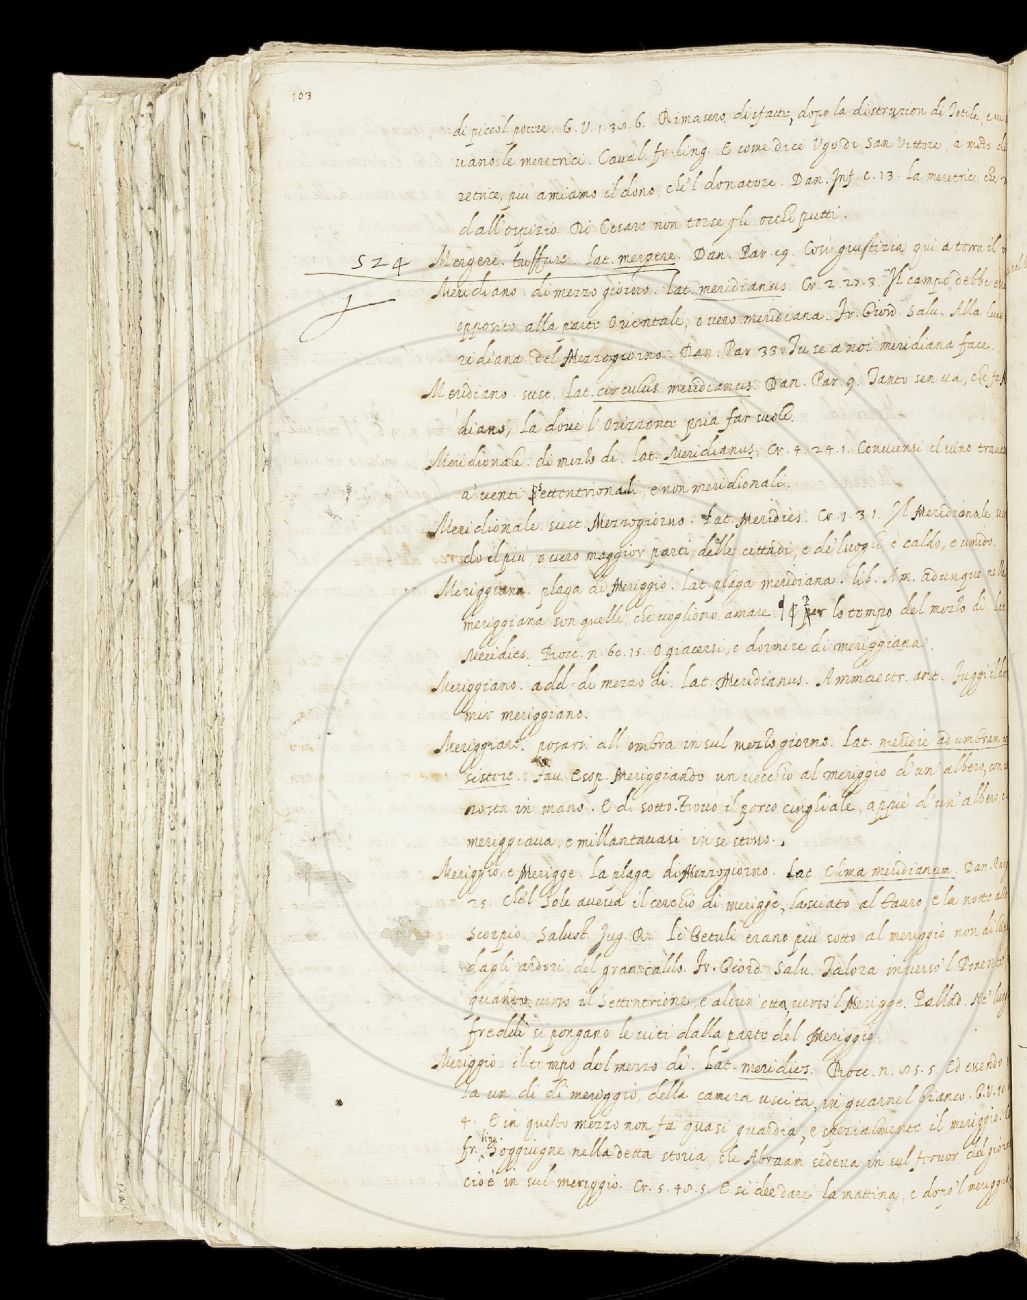 103
di piccol potere. G. V. 1. 38. 6. Rimasero disfatti, dopo la distruzion di Totile, e
uano le meretrici. Caual. fr. ling. E come dice Vgo di San Vittore, a modo
retrice, piú amiamo il dono, che 'l donatore. Dan. Inf. c. 13. La meretrice, che
dall'ospizio Di Cesare non torse gli occhi putti.
524 Mergere. tuffare. Lat. mergere. Dan. Par. 19. Cosi giustizia qui a terra il
Meridiano. di mezzo giorno. Lat. meridianus. Cr. 2. 27. 3. Il campo debbe
1
opposito alla parte Orientale, o vero meridiana. Fr. Giord. Salu. Alla luce
ridiana del Mezzogiorno. Dan. Par. 33. Tu se a noi meridiana face.
Meridiano. sust. Lat. circulus meridianus. Dan. Par. 9. Tanto sen va, che fa
diano, La dove l' Orizzonte pria far suole.
Meridionale. di mezzo dì. Lat. Meridianus. Cr. 4. 24. 1. Conuiensi il uino
a' uenti settentrionali, e non meridionali.
Meridionale. sust. Mezzogiorno. Lat. Meridies. Cr. 1. 3. 1. Il Meridionale
do il piú, o uero maggior parti delle cittadi, e de' luoghi è caldo, e umido.
Meriggiana. plaga di Meriggio. Lat. plaga meridiana. lib. Am. adunque nella
meriggiana son quelle, che uogliono amare. per lo tempo del mezzo dì. Lat.
Meridies. Bocc. n. 60. 15. O giacersi, e dormire di meriggiana.
Meriggiano. add. di mezzo dì. Lat. Meridianus. Ammaestr. ant. Fuggi il
mir meriggiano.
Meriggiare. posarsi all' ombra in sul mezzo giorno. Lat. meridie ad umbram
sistere. Fau. Esop. Meriggiando un uecchio al meriggio d'un' albero, con
rosta in mano. E di sotto. Trouò il porco cinghiale, appiè d'un' albero,
meriggiaua, e millantauasi in se stesso.
Meriggio, e Merigge. La plaga di Mezzogiorno. Lat. Clima meridianum. Dan.
25. Che 'l Sole aueua il cerchio di merigge, Lasciato al Tauro e la notte allo
Scorpio. Salust. Jug. R. Li Getuli erano piu sotto al meriggio, non di
dagli ardori del gran caldo. Fr. Giord. Salu. Talora inuerso 'l
quando uerso il Settentrione, e alcun' otta, uerso 'l Merigge. Pallad. Ne'
freddi si pongano le uiti dalla parte del Meriggio.
Meriggio. il tempo del mezzo dì. Lat. meridies. Bocc. n. 85. 5. Ed essendo
la un dì di meriggio, della camera uscita, in guarnel bianco. G. V.
4. E in questo mezzo non fa quasi guardia, e spezialmente il meriggio.
fr. ling. Soggiugne nella detta storia, che Abraam sedeua in sul feruor del
cioè in sul meriggio. Cr. 5. 48. 5. E si dee dare la mattina, e dopo 'l